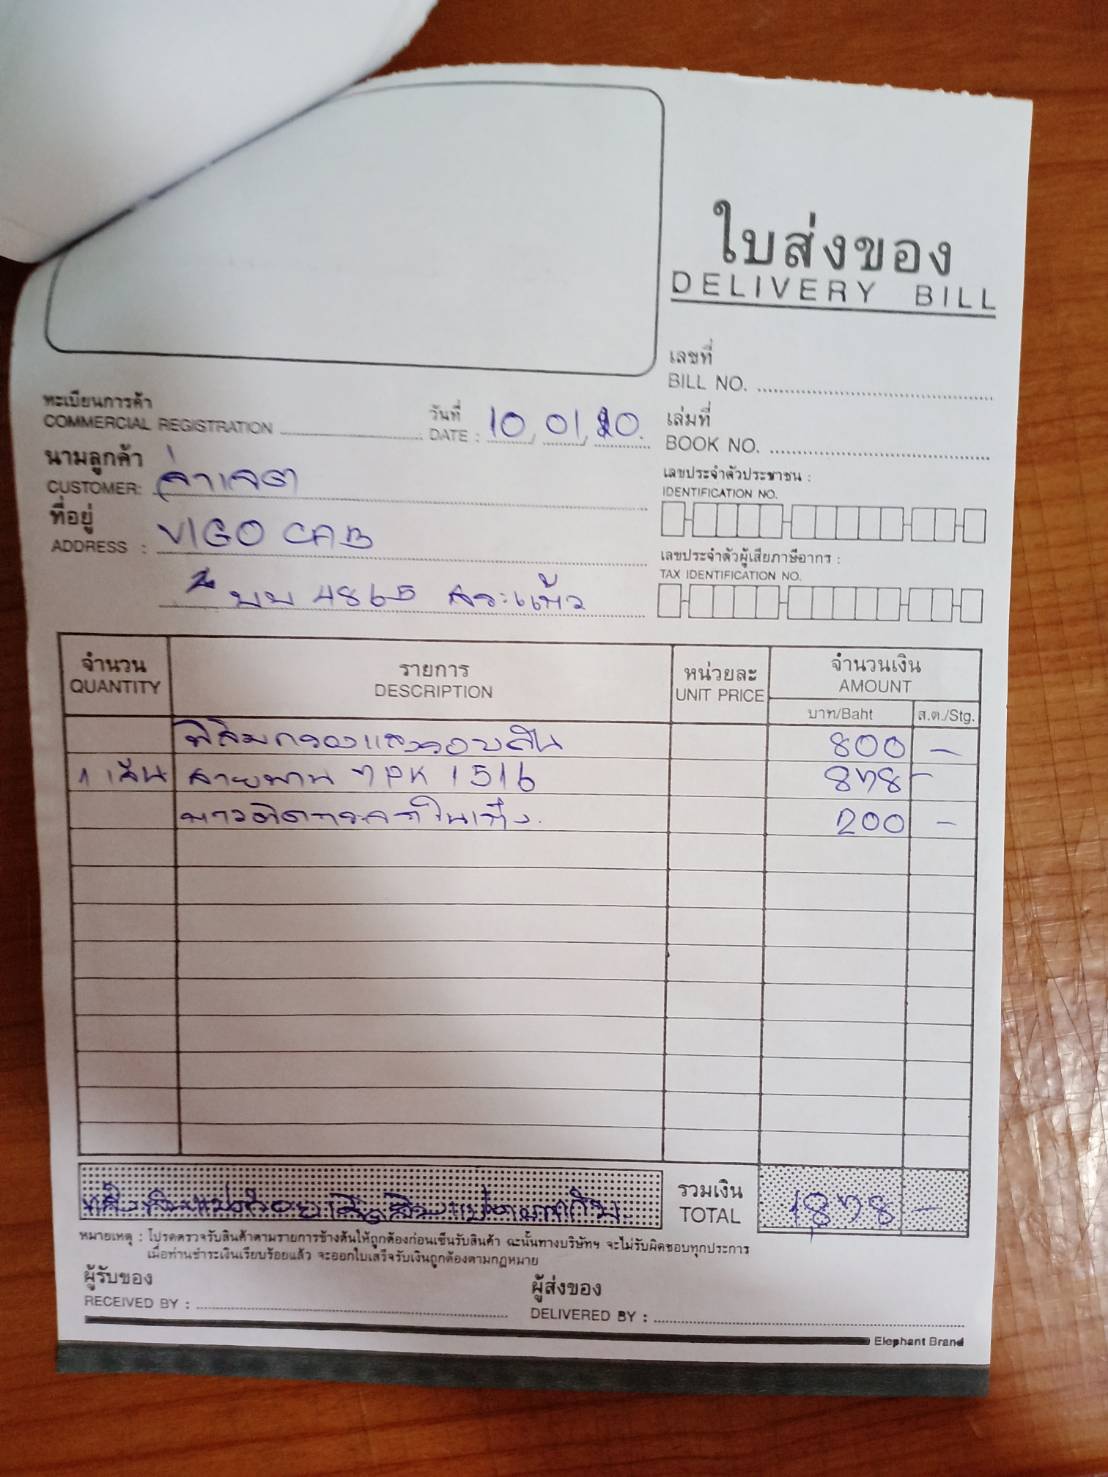 ใบส่งของ
DELIVERY BILL
เลขที่
BILL NO.
ทะเบียนการค้า
COMMERCIAL REGISTRATION
วันที่
DATE : 10, 01, 20.
เล่มที่
BOOK NO.
นามลูกค้า
CUSTOMER:
เลขประจำตัวประชาชน :
IDENTIFICATION NO.
ที่อยู่
ADDRESS : VIGO CAB
เลขประจำตัวผู้เสียภาษีอากร :
TAX IDENTIFICATION NO.
บบ 4865 สระแก้ว
จำนวน รายการ หน่วยละ จำนวนเงิน
QUANTITY DESCRIPTION UNIT PRICE AMOUNT
บาท/Baht ส.ต./Stg.
ฟิล์มกรองแสงรอบคัน 800 -
1 เส้น สายพาน 7PK 1516 878 -
200 -
หนึ่งพันแปดร้อยเจ็ดสิบแปดบาทถ้วน
รวมเงิน
TOTAL 1878 -
หมายเหตุ : โปรดตรวจรับสินค้าตามรายการข้างต้นให้ถูกต้องก่อนเซ็นรับสินค้า ฉะนั้นทางบริษัทฯ จะไม่รับผิดชอบทุกประการ
เมื่อท่านชำระเงินเรียบร้อยแล้ว จะออกใบเสร็จรับเงินถูกต้องตามกฎหมาย
ผู้รับของ
RECEIVED BY :
ผู้ส่งของ
DELIVERED BY :
Elephant Brand